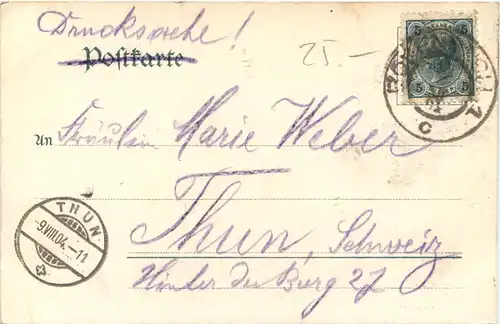 Drucksache!
Postkarte
25.-
5 5
An Fräulein Marie Weber
Thun, Schweiz
Hinter der Burg 27
THUN
9.VIII.04.-11
C